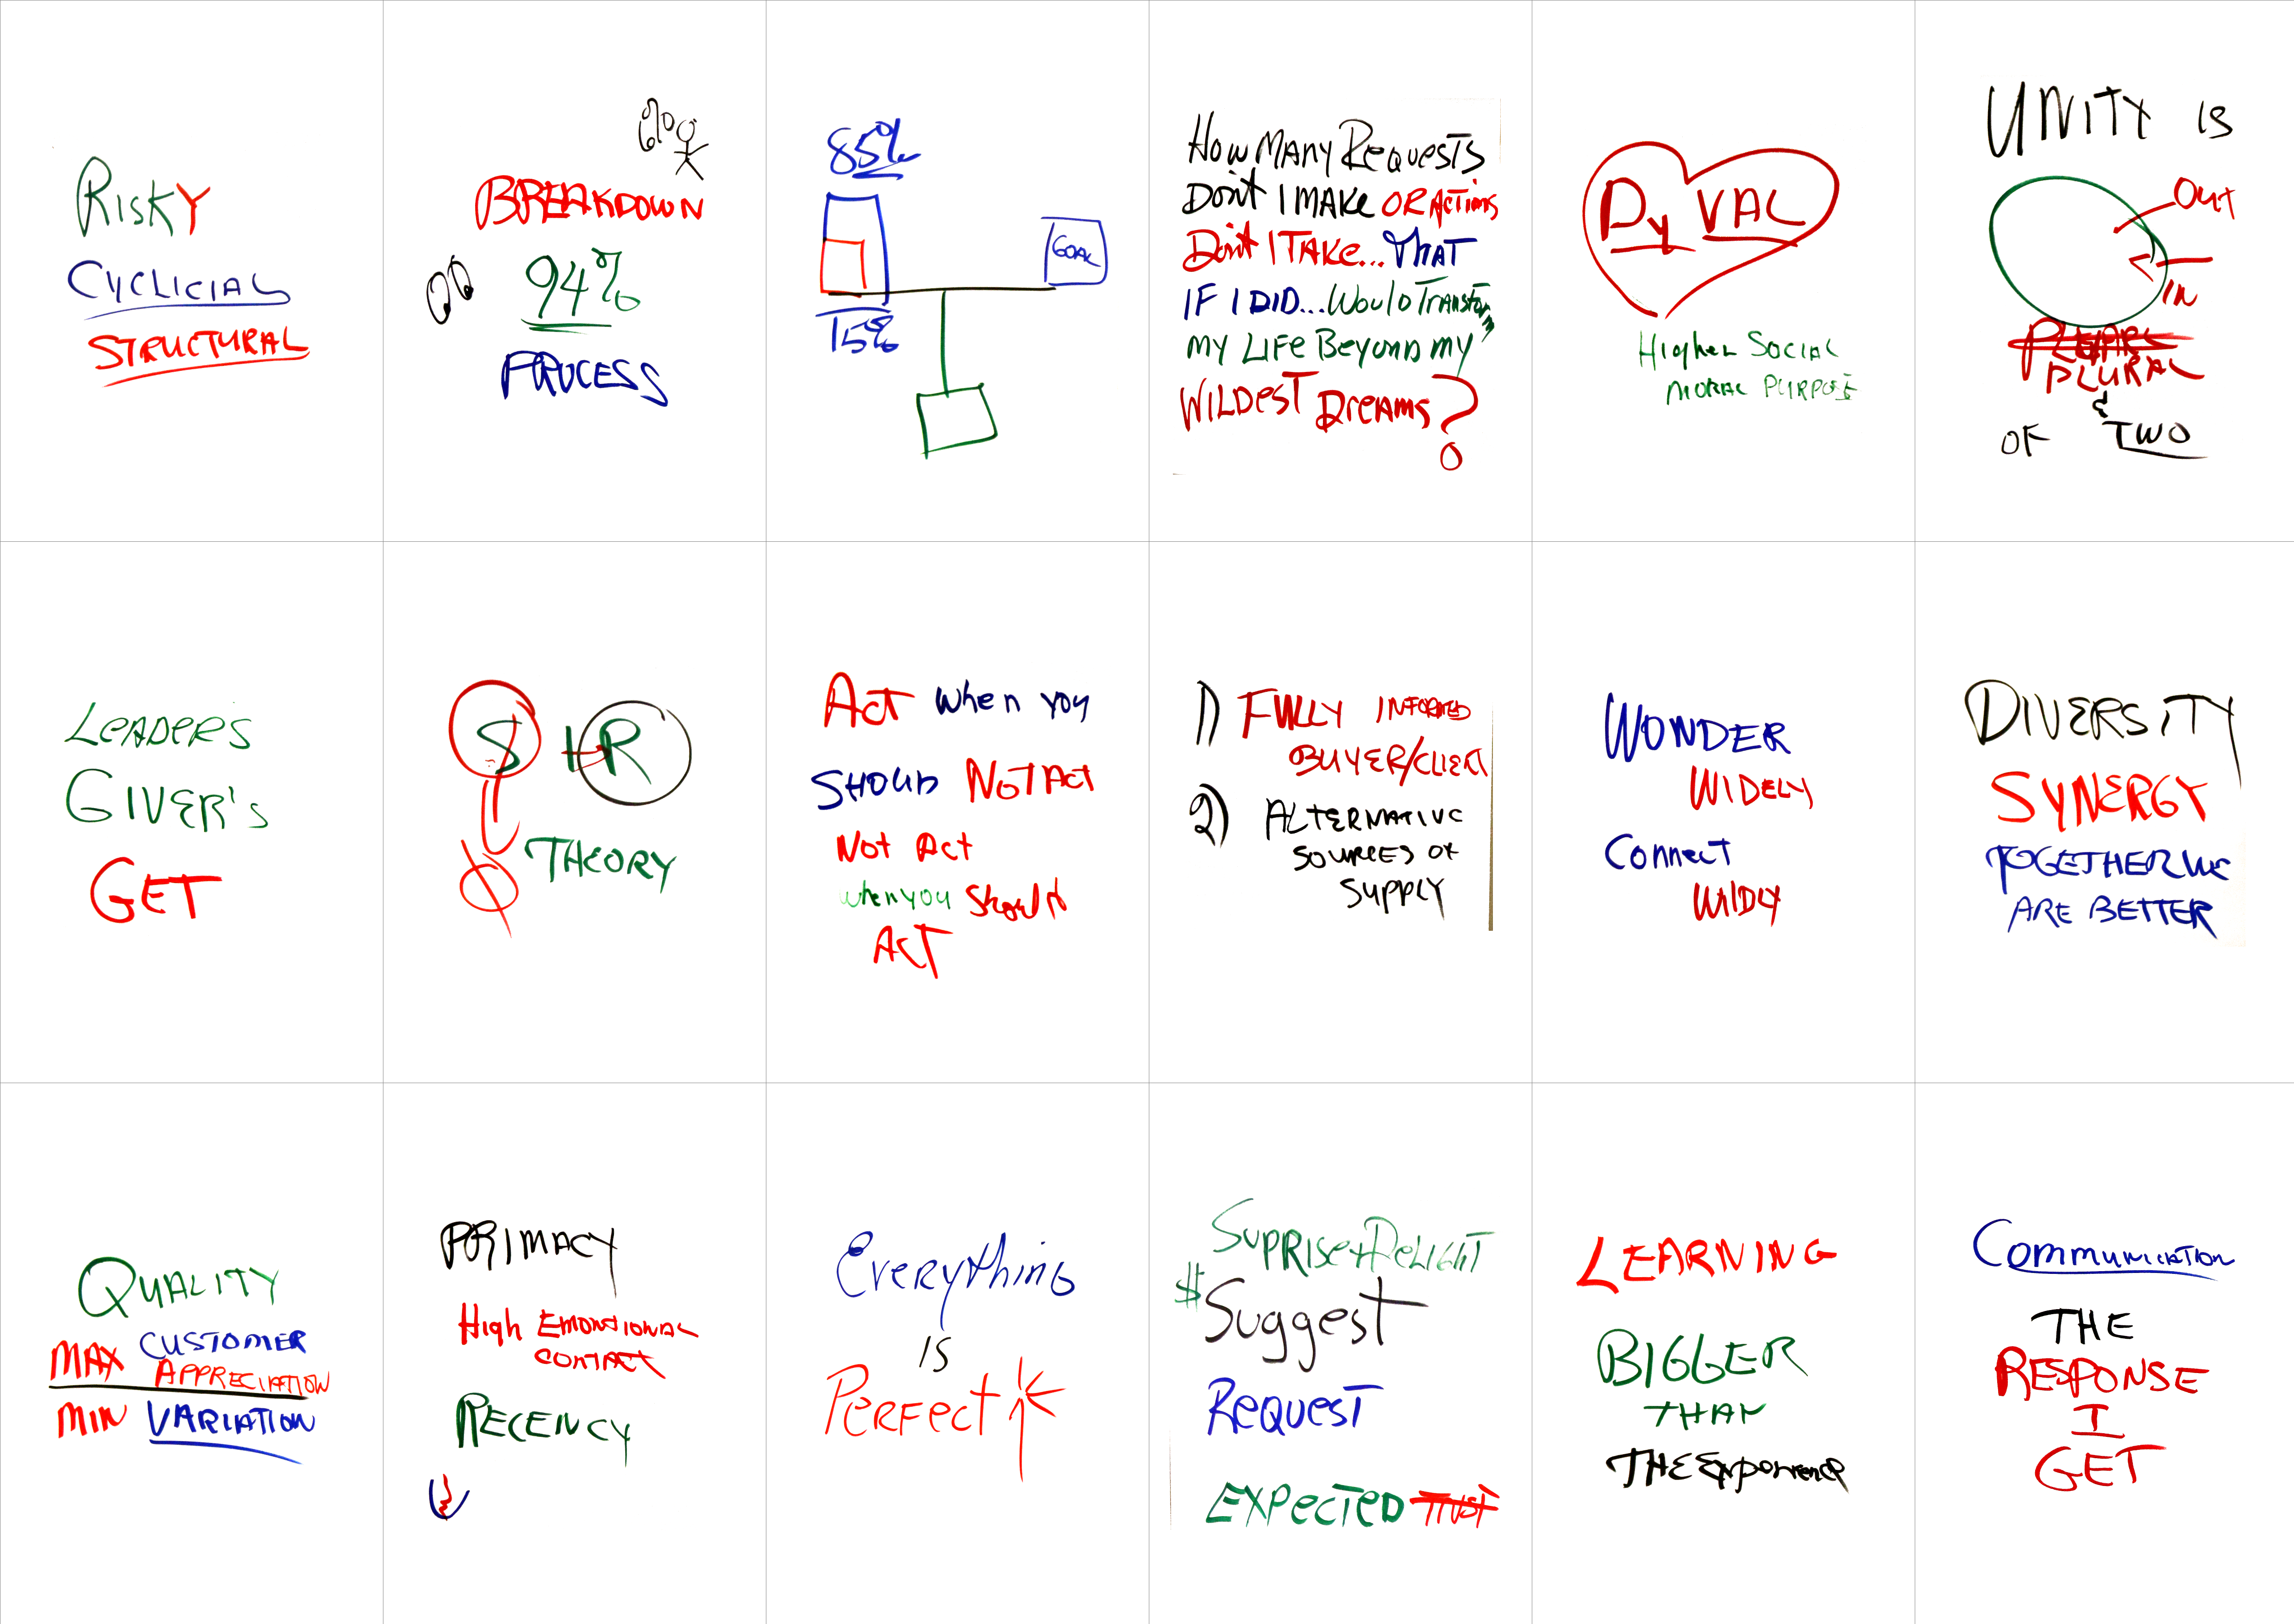 RISKY
CYCLICIAL
STRUCTURAL
6%
BREAKDOWN
94%
PROCESS
85%
GOAL
15%
HOW MANY REQUESTS
DON'T I MAKE OR ACTIONS
DON'T I TAKE... THAT
IF I DID... WOULD TRANSFORM
MY LIFE BEYOND MY
WILDEST DREAMS?
Dy VAL
HIGHER SOCIAL
MORAL PURPOSE
UNITY IS
OUT
IN
PLURAL
&
OF TWO
LEADERS
GIVER'S
GET
S R
THEORY
ACT when you
SHOULD NOT ACT
NOT ACT
when you SHOULD
ACT
1) FULLY INFORMED
BUYER/CLIENT
2) ALTERNATIVE
SOURCES OF
SUPPLY
WONDER
WIDELY
CONNECT
WILDLY
DIVERSITY
SYNERGY
TOGETHER WE
ARE BETTER
QUALITY
MAX CUSTOMER
APPRECIATION
MIN VARIATION
PRIMACY
HIGH EMOTIONAL
CONTACT
RECENCY
EVERYTHING
IS
PERFECT
SUPRISE + DELIGHT
$
Suggest
REQUEST
EXPECTED TRUST
LEARNING
BIGGER
THAN
THE EXPERIENCE
COMMUNICATION
THE
RESPONSE
I
GET